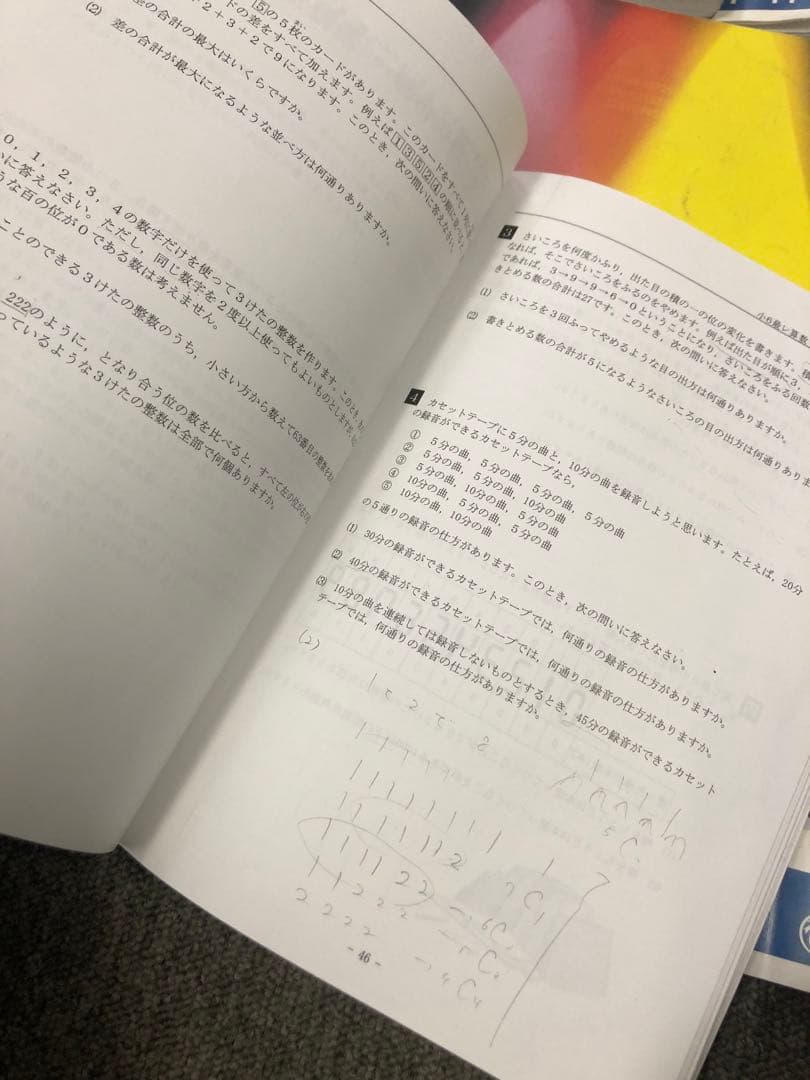 5の5枚のカードがあります。このカードをすべて1列に
ドの差をすべて加えます。例えば13524の順に並べる
+2+3+2で9になります。このとき，次の問いに答えなさい。
差の合計の最大はいくらですか。
(2) 差の合計が最大になるような並べ方は何通りありますか。
0，1，2，3，4の数字だけを使って3けたの整数を作ります。このとき，
に答えなさい。ただし，同じ数字を2度以上使ってもよいものとしますが，
うな百の位が0である数は考えません。
ことのできる3けたの整数のうち，小さい方から数えて63番目の整数を
222のように，となり合う位の数を比べると，すべて左の位が
っているような3けたの整数は全部で何個ありますか。
小6最レ算数
3 さいころを何度かふり，出た目の積の一の位の変化を書きます。積
なれば，そこでさいころをふるのをやめます。例えば出た目が順に3，
であれば，3→9→9→6→0ということになり，さいころをふる回数
きとめる数の合計は27です。このとき，次の問いに答えなさい。
(1) さいころを3回ふってやめるような目の出方は何通りありますか。
(2) 書きとめる数の合計が5になるようなさいころの目の出方は何通りありま
4 カセットテープに5分の曲と，10分の曲を録音しようと思います。たとえば，20分
の録音ができるカセットテープなら，
① 5分の曲，5分の曲，5分の曲，5分の曲
② 5分の曲，5分の曲，10分の曲
③ 5分の曲，10分の曲，5分の曲
④ 10分の曲，5分の曲，5分の曲
⑤ 10分の曲，10分の曲
の5通りの録音の仕方があります。このとき，次の問いに答えなさい。
(1) 30分の録音ができるカセットテープでは，何通りの録音の仕方がありますか。
(2) 40分の録音ができるカセットテープでは，何通りの録音の仕方がありますか。
(3) 10分の曲を連続しては録音しないものとするとき，45分の録音ができるカセット
テープでは，何通りの録音の仕方がありますか。
(2)
1と2で8
1 1 1 1 1 1 1 1 1
1 1 1 1 1 1 2 7C1
1 1 1 1 2 2 → 6C2
1 1 2 2 2 → 5C3
2 2 2 2 → 4C4
- 46 -